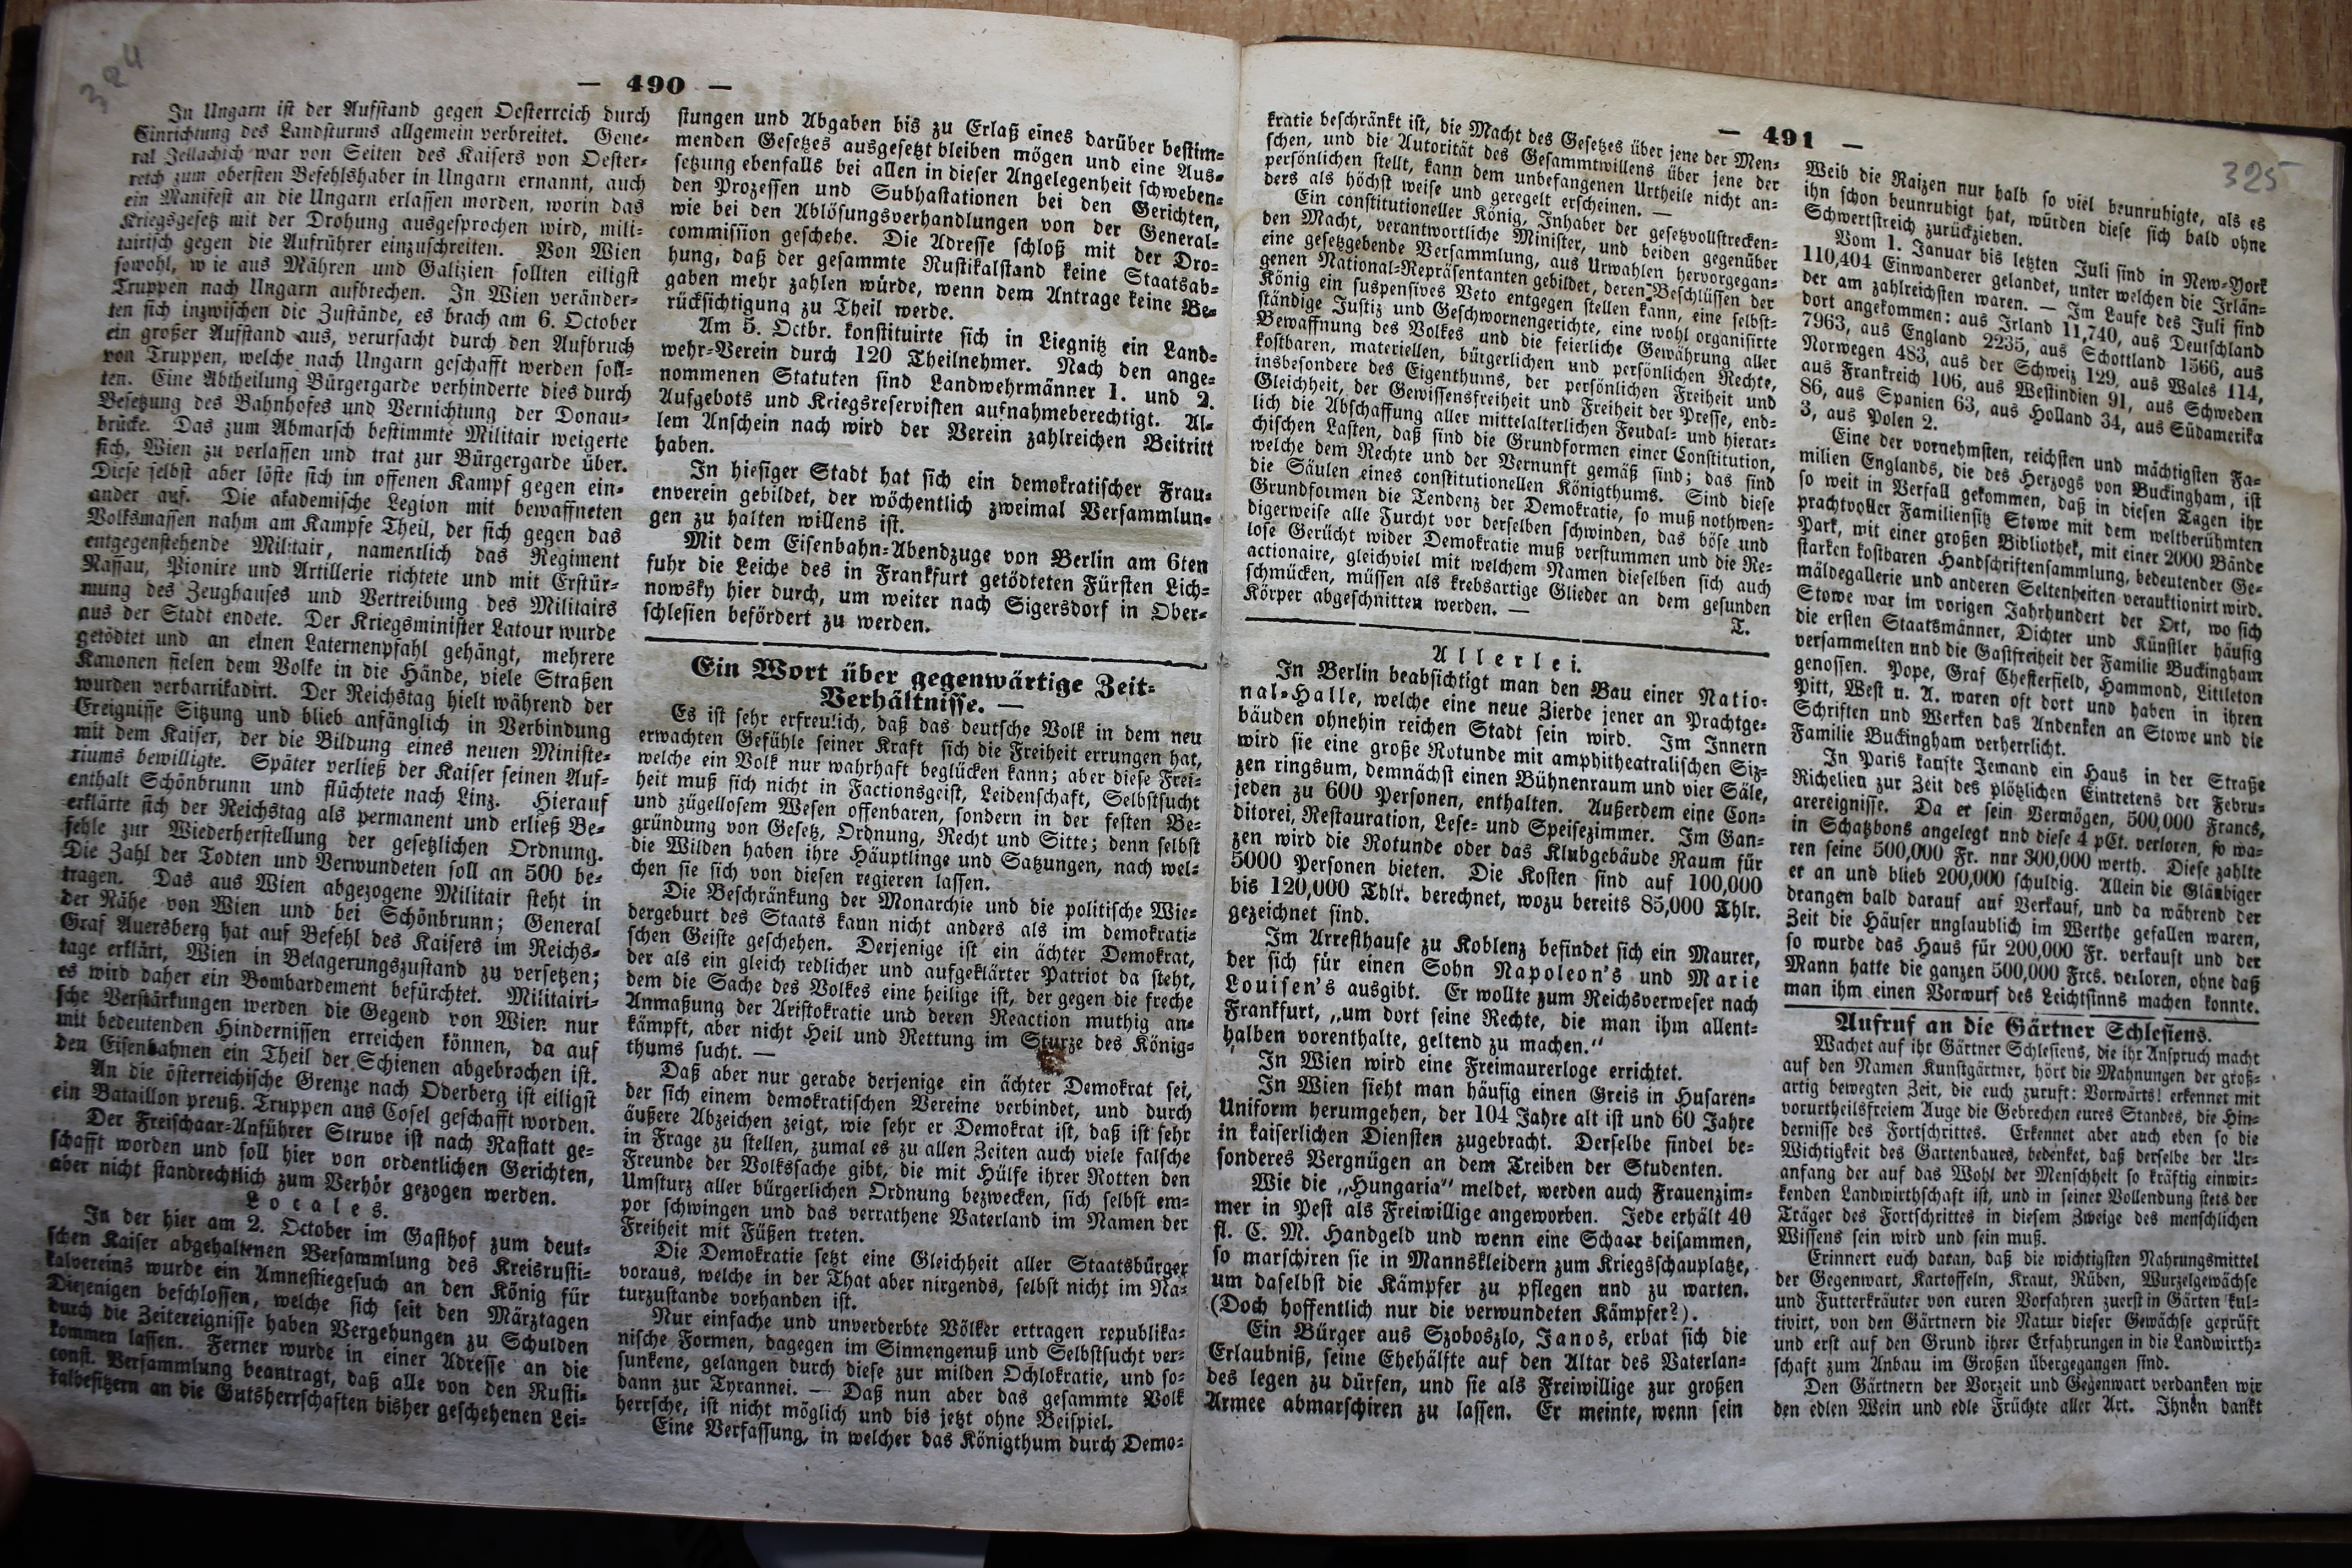 324
— 490 —
In Ungarn ist der Aufstand gegen Oesterreich durch
Einrichtung des Landsturms allgemein verbreitet. Gene-
ral Jellachich war von Seiten des Kaisers von Oester-
reich zum obersten Befehlshaber in Ungarn ernannt, auch
ein Manifest an die Ungarn erlassen worden, worin das
Kriegsgesetz mit der Drohung ausgesprochen wird, mili-
tairisch gegen die Aufrührer einzuschreiten. Von Wien
sowohl, wie aus Mähren und Galizien sollten eiligst
Truppen nach Ungarn aufbrechen. In Wien veränder-
ten sich inzwischen die Zustände, es brach am 6. October
ein großer Aufstand aus, verursacht durch den Aufbruch
von Truppen, welche nach Ungarn geschafft werden soll-
ten. Eine Abtheilung Bürgergarde verhinderte dies durch
Besetzung des Bahnhofes und Vernichtung der Donau-
brücke. Das zum Abmarsch bestimmte Militair weigerte
sich, Wien zu verlassen und trat zur Bürgergarde über.
Diese selbst aber löste sich im offenen Kampf gegen ein-
ander auf. Die akademische Legion mit bewaffneten
Volksmassen nahm am Kampfe Theil, der sich gegen das
entgegenstehende Militair, namentlich das Regiment
Nassau, Pionire und Artillerie richtete und mit Erstür-
mung des Zeughauses und Vertreibung des Militairs
aus der Stadt endete. Der Kriegsminister Latour wurde
getödtet und an einen Laternenpfahl gehängt, mehrere
Kanonen fielen dem Volke in die Hände, viele Straßen
wurden verbarrikadirt. Der Reichstag hielt während der
Ereignisse Sitzung und blieb anfänglich in Verbindung
mit dem Kaiser, der die Bildung eines neuen Ministe-
riums bewilligte. Später verließ der Kaiser seinen Auf-
enthalt Schönbrunn und flüchtete nach Linz. Hierauf
erklärte sich der Reichstag als permanent und erließ Be-
fehle zur Wiederherstellung der gesetzlichen Ordnung.
Die Zahl der Todten und Verwundeten soll an 500 be-
tragen. Das aus Wien abgezogene Militair steht in
der Nähe von Wien und bei Schönbrunn; General
Graf Auersberg hat auf Befehl des Kaisers im Reichs-
tage erklärt, Wien in Belagerungszustand zu versetzen;
es wird daher ein Bombardement befürchtet. Militairi-
sche Verstärkungen werden die Gegend von Wien nur
mit bedeutenden Hindernissen erreichen können, da auf
den Eisenbahnen ein Theil der Schienen abgebrochen ist.
An die österreichische Grenze nach Oderberg ist eiligst
ein Bataillon preuß. Truppen aus Cosel geschafft worden.
Der Freischaar-Anführer Struve ist nach Rastatt ge-
schafft worden und soll hier von ordentlichen Gerichten,
aber nicht standrechtlich zum Verhör gezogen werden.
Locales.
In der hier am 2. October im Gasthof zum deut-
schen Kaiser abgehaltenen Versammlung des Kreisrusti-
kalvereins wurde ein Amnestiegesuch an den König für
Diejenigen beschlossen, welche sich seit den Märztagen
durch die Zeitereignisse haben Vergehungen zu Schulden
kommen lassen. Ferner wurde in einer Adresse an die
const. Versammlung beantragt, daß alle von den Rusti-
kalbesitzern an die Gutsherrschaften bisher geschehenen Lei-
stungen und Abgaben bis zu Erlaß eines darüber bestim-
menden Gesetzes ausgesetzt bleiben mögen und eine Aus-
setzung ebenfalls bei allen in dieser Angelegenheit schweben-
den Prozessen und Subhastationen bei den Gerichten,
wie bei den Ablösungsverhandlungen von der General-
commission geschehe. Die Adresse schloß mit der Dro-
hung, daß der gesammte Rustikalstand keine Staatsab-
gaben mehr zahlen würde, wenn dem Antrage keine Be-
rücksichtigung zu Theil werde.
Am 5. Octbr. konstituirte sich in Liegnitz ein Land-
wehr-Verein durch 120 Theilnehmer. Nach den ange-
nommenen Statuten sind Landwehrmänner 1. und 2.
Aufgebots und Kriegsreservisten aufnahmeberechtigt. Al-
lem Anschein nach wird der Verein zahlreichen Beitritt
haben.
In hiesiger Stadt hat sich ein demokratischer Frau-
enverein gebildet, der wöchentlich zweimal Versammlun-
gen zu halten willens ist.
Mit dem Eisenbahn-Abendzuge von Berlin am 6ten
fuhr die Leiche des in Frankfurt getödteten Fürsten Lich-
nowsky hier durch, um weiter nach Sigersdorf in Ober-
schlesien befördert zu werden.
Ein Wort über gegenwärtige Zeit-
Verhältnisse. —
Es ist sehr erfreulich, daß das deutsche Volk in dem neu
erwachten Gefühle seiner Kraft sich die Freiheit errungen hat,
welche ein Volk nur wahrhaft beglücken kann; aber diese Frei-
heit muß sich nicht in Factionsgeist, Leidenschaft, Selbstsucht
und zügellosem Wesen offenbaren, sondern in der festen Be-
gründung von Gesetz, Ordnung, Recht und Sitte; denn selbst
die Wilden haben ihre Häuptlinge und Satzungen, nach wel-
chen sie sich von diesen regieren lassen.
Die Beschränkung der Monarchie und die politische Wie-
dergeburt des Staats kann nicht anders als im demokrati-
schen Geiste geschehen. Derjenige ist ein ächter Demokrat,
der als ein gleich redlicher und aufgeklärter Patriot da steht,
dem die Sache des Volkes eine heilige ist, der gegen die freche
Anmaßung der Aristokratie und deren Reaction muthig an-
kämpft, aber nicht Heil und Rettung im Sturze des König-
thums sucht. —
Daß aber nur gerade derjenige ein ächter Demokrat sei,
der sich einem demokratischen Vereine verbindet, und durch
äußere Abzeichen zeigt, wie sehr er Demokrat ist, daß ist sehr
in Frage zu stellen, zumal es zu allen Zeiten auch viele falsche
Freunde der Volkssache gibt, die mit Hülfe ihrer Rotten den
Umsturz aller bürgerlichen Ordnung bezwecken, sich selbst em-
por schwingen und das verrathene Vaterland im Namen der
Freiheit mit Füßen treten.
Die Demokratie setzt eine Gleichheit aller Staatsbürger
voraus, welche in der That aber nirgends, selbst nicht im Na-
turzustande vorhanden ist.
Nur einfache und unverderbte Völker ertragen republika-
nische Formen, dagegen im Sinnengenuß und Selbstsucht ver-
sunkene, gelangen durch diese zur milden Ochlokratie, und so-
dann zur Tyrannei. — Daß nun aber das gesammte Volk
herrsche, ist nicht möglich und bis jetzt ohne Beispiel.
Eine Verfassung, in welcher das Königthum durch Demo-
— 491 —
325
kratie beschränkt ist, die Macht des Gesetzes über jene der Men-
schen, und die Autorität des Gesammtwillens über jene der
persönlichen stellt, kann dem unbefangenen Urtheile nicht an-
ders als höchst weise und geregelt erscheinen. —
Ein constitutioneller König, Inhaber der gesetzvollstrecken-
den Macht, verantwortliche Minister, und beiden gegenüber
eine gesetzgebende Versammlung, aus Urwahlen hervorgegan-
genen National-Repräsentanten gebildet, deren Beschlüssen der
König ein suspensives Veto entgegen stellen kann, eine selbst-
ständige Justiz und Geschwornengerichte, eine wohl organisirte
Bewaffnung des Volkes und die feierliche Gewährung aller
kostbaren, materiellen, bürgerlichen und persönlichen Rechte,
insbesondere des Eigenthums, der persönlichen Freiheit und
Gleichheit, der Gewissensfreiheit und Freiheit der Presse, end-
lich die Abschaffung aller mittelalterlichen Feudal- und hierar-
chischen Lasten, daß sind die Grundformen einer Constitution,
welche dem Rechte und der Vernunft gemäß sind; das sind
die Säulen eines constitutionellen Königthums. Sind diese
Grundformen die Tendenz der Demokratie, so muß nothwen-
digerweise alle Furcht vor derselben schwinden, das böse und
lose Gerücht wider Demokratie muß verstummen und die Re-
actionaire, gleichviel mit welchem Namen dieselben sich auch
schmücken, müssen als krebsartige Glieder an dem gesunden
Körper abgeschnitten werden. —
T.
Allerlei.
In Berlin beabsichtigt man den Bau einer Natio-
nal-Halle, welche eine neue Zierde jener an Prachtge-
bäuden ohnehin reichen Stadt sein wird. Im Innern
wird sie eine große Rotunde mit amphitheatralischen Siz-
zen ringsum, demnächst einen Bühnenraum und vier Säle,
jeden zu 600 Personen, enthalten. Außerdem eine Con-
ditorei, Restauration, Lese- und Speisezimmer. Im Gan-
zen wird die Rotunde oder das Klubgebäude Raum für
5000 Personen bieten. Die Kosten sind auf 100,000
bis 120,000 Thlr. berechnet, wozu bereits 85,000 Thlr.
gezeichnet sind.
Im Arresthause zu Koblenz befindet sich ein Maurer,
der sich für einen Sohn Napoleon's und Marie
Louisen's ausgibt. Er wollte zum Reichsverweser nach
Frankfurt, „um dort seine Rechte, die man ihm allent-
halben vorenthalte, geltend zu machen."
In Wien wird eine Freimaurerloge errichtet.
In Wien sieht man häufig einen Greis in Husaren-
Uniform herumgehen, der 104 Jahre alt ist und 60 Jahre
in kaiserlichen Diensten zugebracht. Derselbe findel be-
sonderes Vergnügen an dem Treiben der Studenten.
Wie die „Hungaria" meldet, werden auch Frauenzim-
mer in Pest als Freiwillige angeworben. Jede erhält 40
fl. C. M. Handgeld und wenn eine Schaar beisammen,
so marschiren sie in Mannskleidern zum Kriegsschauplatze,
um daselbst die Kämpfer zu pflegen und zu warten.
(Doch hoffentlich nur die verwundeten Kämpfer?).
Ein Bürger aus Szoboszlo, Janos, erbat sich die
Erlaubniß, seine Ehehälfte auf den Altar des Vaterlan-
des legen zu dürfen, und sie als Freiwillige zur großen
Armee abmarschiren zu lassen. Er meinte, wenn sein
Weib die Raizen nur halb so viel beunruhigte, als es
ihn schon beunruhigt hat, würden diese sich bald ohne
Schwertstreich zurückziehen.
Vom 1. Januar bis letzten Juli sind in New-York
110,404 Einwanderer gelandet, unter welchen die Irlän-
der am zahlreichsten waren. — Im Laufe des Juli sind
dort angekommen: aus Irland 11,740, aus Deutschland
7963, aus England 2235, aus Schottland 1566, aus
Norwegen 483, aus der Schweiz 129, aus Wales 114,
aus Frankreich 106, aus Westindien 91, aus Schweden
86, aus Spanien 63, aus Holland 34, aus Südamerika
3, aus Polen 2.
Eine der vornehmsten, reichsten und mächtigsten Fa-
milien Englands, die des Herzogs von Buckingham, ist
so weit in Verfall gekommen, daß in diesen Tagen ihr
prachtvoller Familiensitz Stowe mit dem weltberühmten
Park, mit einer großen Bibliothek, mit einer 2000 Bände
starken kostbaren Handschriftensammlung, bedeutender Ge-
mäldegallerie und anderen Seltenheiten verauktionirt wird.
Stowe war im vorigen Jahrhundert der Ort, wo sich
die ersten Staatsmänner, Dichter und Künstler häufig
versammelten und die Gastfreiheit der Familie Buckingham
genossen. Pope, Graf Chesterfield, Hammond, Littleton
Pitt, West u. A. waren oft dort und haben in ihren
Schriften und Werken das Andenken an Stowe und die
Familie Buckingham verherrlicht.
In Paris kaufte Jemand ein Haus in der Straße
Richelien zur Zeit des plötzlichen Eintretens der Febru-
arereignisse. Da er sein Vermögen, 500,000 Francs,
in Schatzbons angelegt und diese 4 pCt. verloren, so wa-
ren seine 500,000 Fr. nur 300,000 werth. Diese zahlte
er an und blieb 200,000 schuldig. Allein die Gläubiger
drangen bald darauf auf Verkauf, und da während der
Zeit die Häuser unglaublich im Werthe gefallen waren,
so wurde das Haus für 200,000 Fr. verkauft und der
Mann hatte die ganzen 500,000 Frcs. verloren, ohne daß
man ihm einen Vorwurf des Leichtsinns machen konnte.
Aufruf an die Gärtner Schlesiens.
Wachet auf ihr Gärtner Schlesiens, die ihr Anspruch macht
auf den Namen Kunstgärtner, hört die Mahnungen der groß-
artig bewegten Zeit, die euch zuruft: Vorwärts! erkennet mit
vorurtheilsfreiem Auge die Gebrechen eures Standes, die Hin-
dernisse des Fortschrittes. Erkennet aber auch eben so die
Wichtigkeit des Gartenbaues, bedenket, daß derselbe der Ur-
anfang der auf das Wohl der Menschheit so kräftig einwir-
kenden Landwirthschaft ist, und in seiner Vollendung stets der
Träger des Fortschrittes in diesem Zweige des menschlichen
Wissens sein wird und sein muß.
Erinnert euch daran, daß die wichtigsten Nahrungsmittel
der Gegenwart, Kartoffeln, Kraut, Rüben, Wurzelgewächse
und Futterkräuter von euren Vorfahren zuerst in Gärten kul-
tivirt, von den Gärtnern die Natur dieser Gewächse geprüft
und erst auf den Grund ihrer Erfahrungen in die Landwirth-
schaft zum Anbau im Großen übergegangen sind.
Den Gärtnern der Vorzeit und Gegenwart verdanken wir
den edlen Wein und edle Früchte aller Art. Ihnen dankt